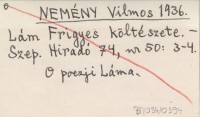 NEMÉNY Vilmos 1936.
Lám Frigyes költészete. –
Szep. Hiradó 74, nr 50: 3-4.
O poezji Láma.